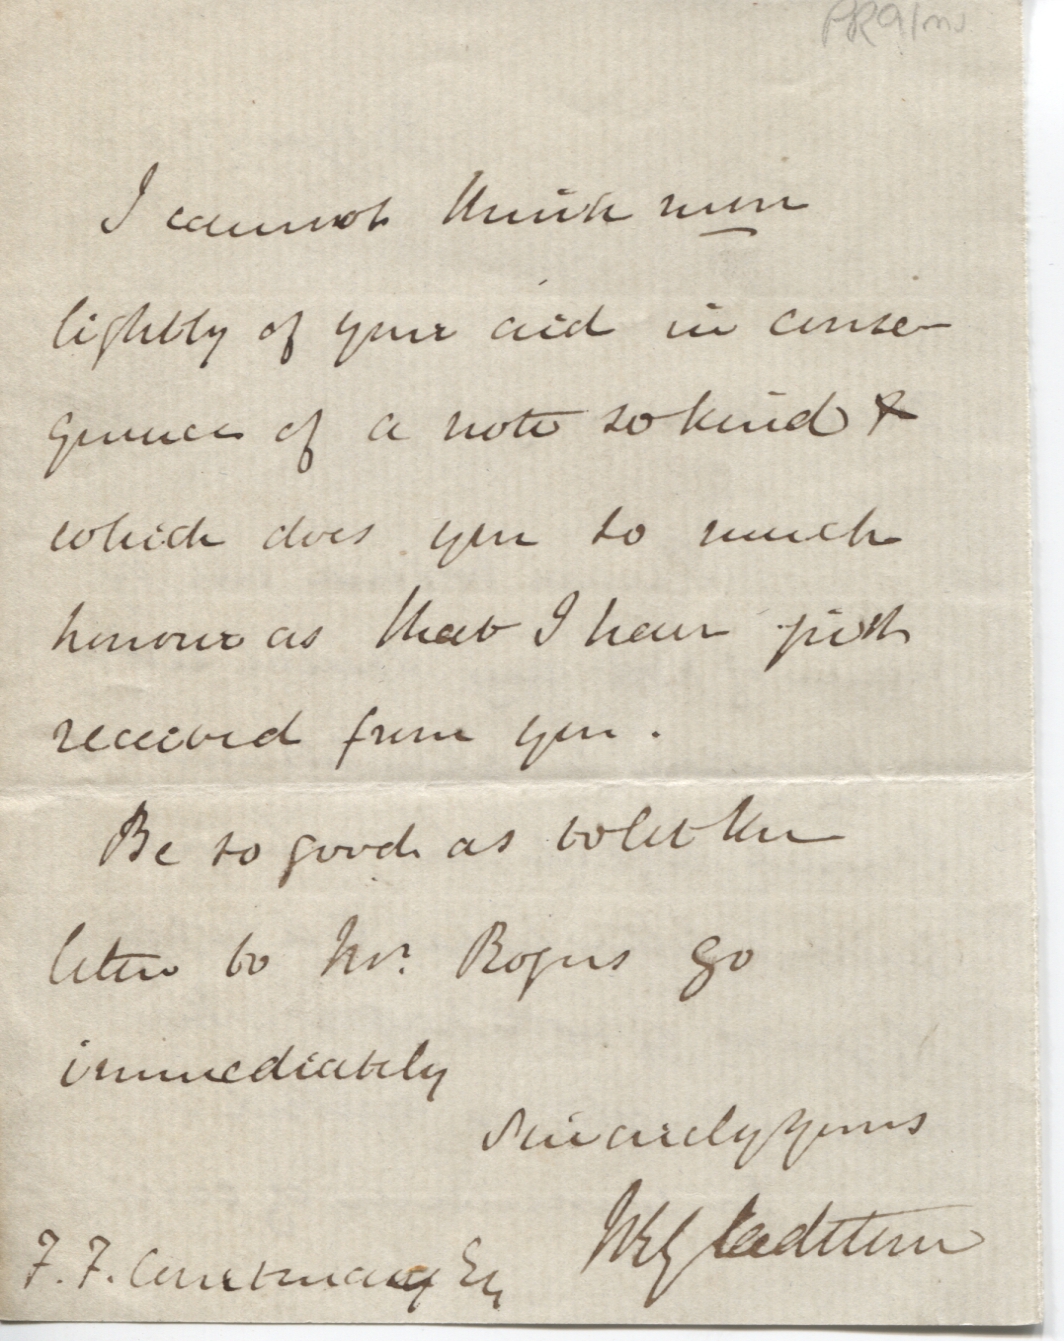 I cannot think more
lightly of your aid in conse-
quence of a note so kind &
which does you so much
honour as that I have just
received from you.
Be so good as to let the
letter to Mr. Rogers go
immediately
Sincerely yours
WEGladstone
F. F. Courtenay Esq